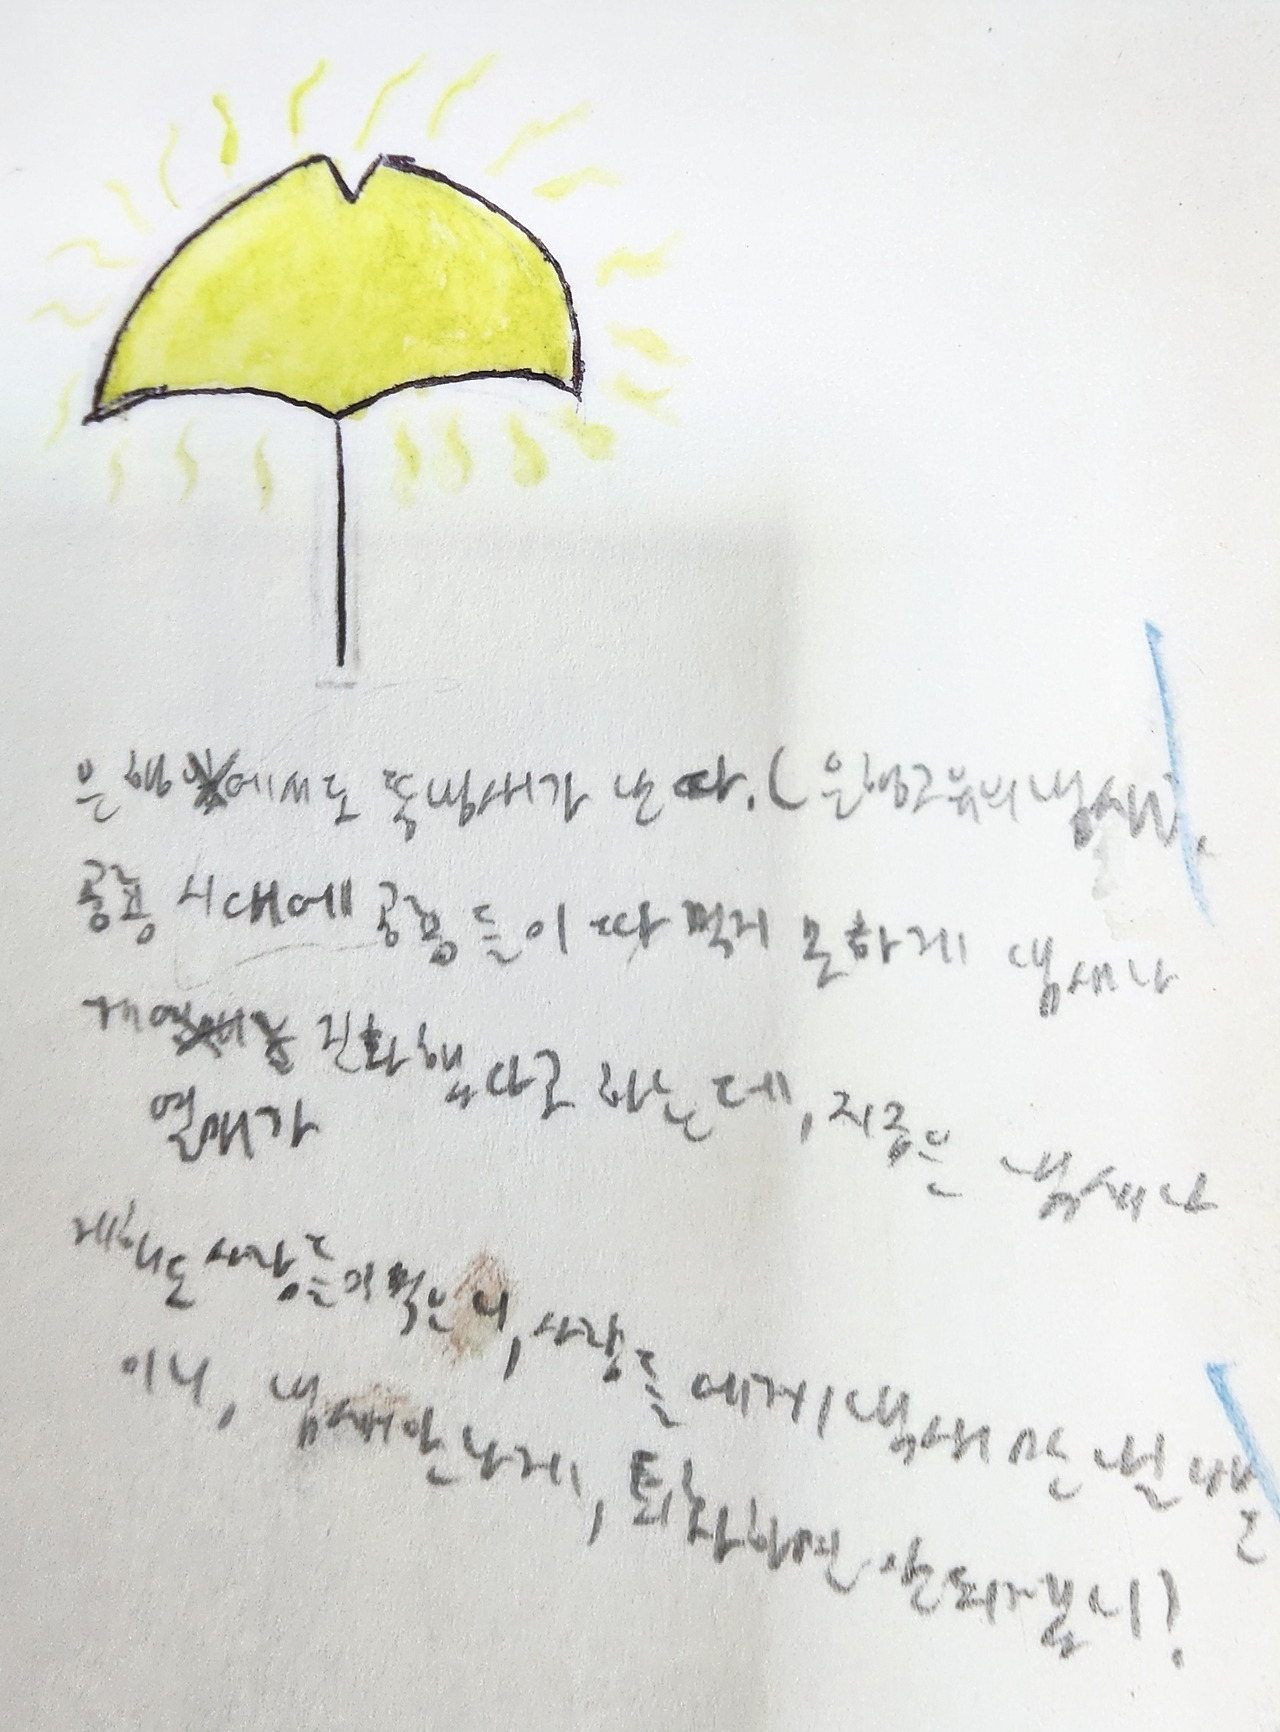 은행에서도 똥냄새가 난다. (은행고유의 냄새).
공룡 시대에 공룡들이 따 먹지 못하게 냄새나
게 진화했다고 하는데, 지금은 냄새나
열매가
게해도 사람들이 먹으니, 사람들에게 냄새만 날 뿐
이니, 냄새안나게, 퇴화하면 안되겠니?